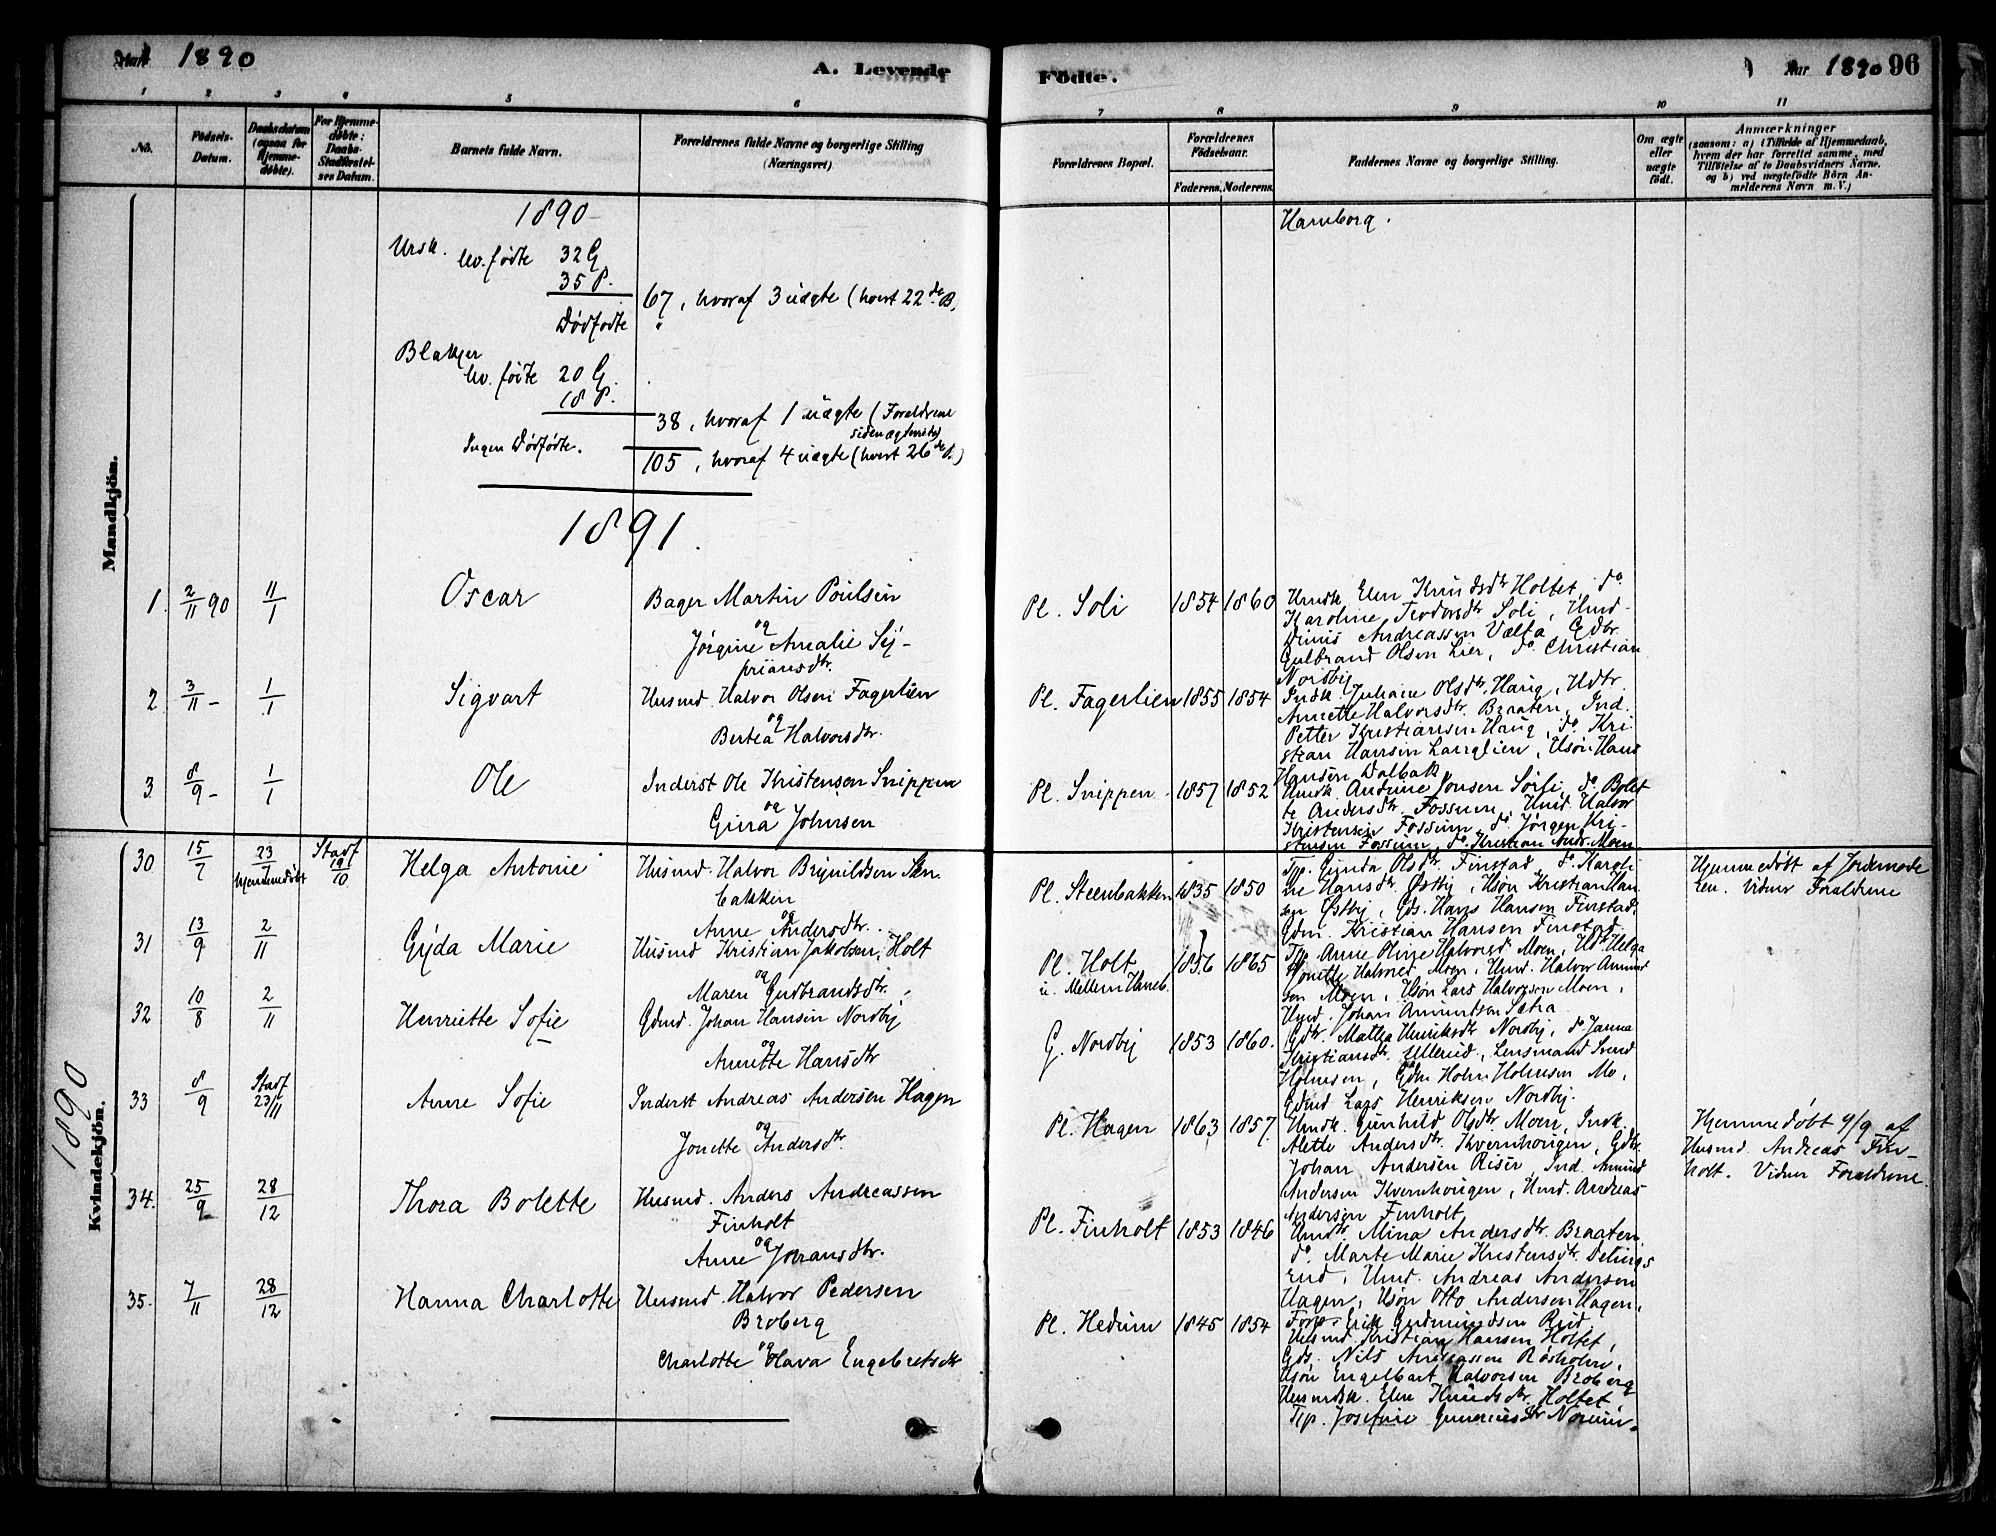 1890
A. Levende
Födte.
Aar 1890 96
1 2 3 4 5 6 7 8 9 10 11
No.
Födsels-Datum.
Daabsdatum (ogsaa for Hjemme-döbte).
For Hjemme-döbte: Daabs-Stadfæstel-ses Datum.
Barnets fulde Navn.
Forældrenes fulde Navne og borgerlige Stilling (Næringsvei)
Forældrenes Bopæl.
Forældrenes Födselsaar.
Faderens. Moderens.
Faddernes Navne og borgerlige Stilling.
Om ægte eller uægte födt.
Anmærkninger
(saasom: a) i Tilfælde af Hjemmedaab, hvem der har forrettet samme, med Tilföielse af to Daabsvidners Navne. og b) ved uægtefödte Börn An-melderens Navn m. V.)
Mandkjön.
1890
Hamborg.
Ursk. lev. fødte 32 G
35 P.
67, hvoraf 3 uægte (hvert 22de B.
Dødfødte "
Blakjer
lev. fødte 20 G.
18 P.
38, hvoraf 1 uægte (Forældrene
siden ægteviet)
Ingen Dødfødte.
105, hvoraf 4 uægte (hvert 26de B.)
1891.
1. 2/11 90 11/1 Oscar
Bager Martin Poulsen
og
Jørgine Amalie Sy-
priansdtr.
Pl. Soli 1854 1860
Hmdk. Elen Knudsdtr Holtet, do
Karoline Teodorsdtr Soli, Husmd
Dines Andreassen Valta, Gdbr.
Gulbrand Olsen Lier, do Christian
Nordby
2. 3/11 - 1/1 Sigvart
Husmd. Halvor Olsen Fagerlien
og
Bertea Halvorsdtr.
Pl. Fagerlien 1855 1854
Indk. Juliane Olsdtr. Haug, Hdtr.
Annette Halvorsdtr. Braaten, Ind.
Petter Kristiansen Haug, do Kri-
stian Hansen Langlien, Hsøn Hans
Hansen Dalbak
3. 8/9 - 1/1 Ole
Inderst Ole Kristensen Snippen
og
Gina Johnsen
Pl. Snippen 1857 1852
Hmdk. Andrine Jonsen Sørli, do Bolet-
te Andersdtr. Fossum, Hmd. Halvor
Kristensen Fossum, do Jørgen Kri-
stensen Fossum, do Kristian Andr. Moen
1890
Kvindekjön.
30 15/7 23/7 Hjemmedøbt Stadf 19/10 Helga Antonie
Husmd. Halvor Brynildsen Sten-
bakken
og
Anne Andersdtr.
Pl. Steenbakken 1835 1850
Tjp. Gunda Olsdtr. Finstad, do Karoli-
ne Hansdtr. Østby, Hsøn Kristian Han-
sen Østby, Gds. Hans Hansen Finstad.
Gdm. Kristian Hansen Finstad.
Hjemmedøbt af Jordemode-
ren. Vidner Forældrene
31 13/9 2/11 Gyda Marie
Husmd Kristian Jakobsen Holt
og
Maren Gudbrandsdtr.
Pl. Holt
u. Mellem Haneb.
1856 1865
Tjp. Anne Oline Halvorsd Moen, Hdtr Helga
Jonette Halvorsd Moen, Hmd. Halvor Amund-
sen Moen, Hsøn Lars Halvorsen Moen,
Hmd. Johan Amundsen Sætra
32 10/8 2/11 Henriette Sofie
Gdmd. Johan Hansen Nordby
og
Annette Hansdtr
G. Nordby 1853 1860.
Gdtr. Mathea Henriksdtr Nordby, do Janna
Kristiansdtr. Ullerud, Lensmand Svend
Holmsen, Gdm Holm Holmsen Mo,
Gdmd Lars Henriksen Nordby.
33 8/9 Stadf 23/11 Anne Sofie
Inderst Andreas Andersen Hagen
og
Jonette Andersdtr.
Pl. Hagen 1863 1857.
Hmdk. Gunhild Olsdtr. Moen, Indk.
Alette Andersdtr. Kvernhougen, Gdbr.
Johan Andersen Riser, Ind. Amund
Andersen Kvernhougen, Hmd. Andreas
Andersen Finholt
Hjemmedøbt 9/9 af
Husmd Andreas Fin-
holt. Vidner Forældrene
34. 25/9 28/12 Thora Bolette
Husmd. Anders Andreassen
Finholt
og
Anne Joransdtr.
Pl. Finholt 1853 1846
Hmdtr. Mina Andersdtr. Braaten.
do. Marte Marie Kristensdtr. Delings-
rud, Hmd. Andreas Andersen
Hagen, Hsøn Otto Andersen Hagen,
35. 7/11 28/12 Hanna Charlotte
Husmd. Halvor Pedersen
Broberg
og
Charlotte Olava Engebretsdtr
Pl. Hedum 1845 1854
Forp. Erik Gudmundsen Rud,
Husmd. Kristian Hansen Holtet,
Gds. Nils Andreassen Røsholm,
Hsøn Engelbart Halvorsen Broberg
Husmdsk. Elen Knudsdtr. Holtet
Tjp. Josefine Gunerius dtr Nordli.